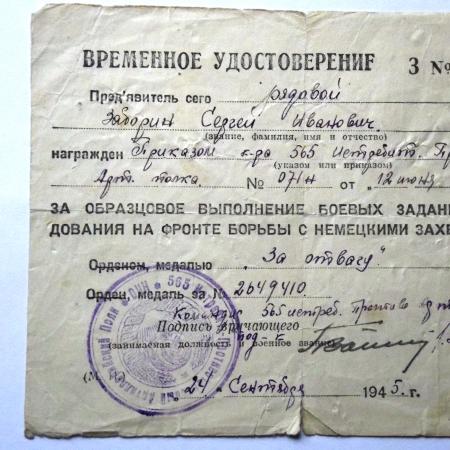 ВРЕМЕННОЕ УДОСТОВЕРЕНИЕ З №
Пред'явитель сего рядовой
Сергей Иванович
(звание, фамилия, имя и отчество)
награжден Приказом к-ра 565 Истребит. Пр
(указом или приказом)
Арт. полка. № 071н от "12 июня
ЗА ОБРАЗЦОВОЕ ВЫПОЛНЕНИЕ БОЕВЫХ ЗАДАН
ДОВАНИЯ НА ФРОНТЕ БОРЬБЫ С НЕМЕЦКИМИ ЗАХВ
Орденом, медалью "За отвагу"
Орден, медаль за № 2649410.
565 истреб. Противо
Подпись вручающего
(занимаемая должность и военное звание)
24 Сентября 1945 г.